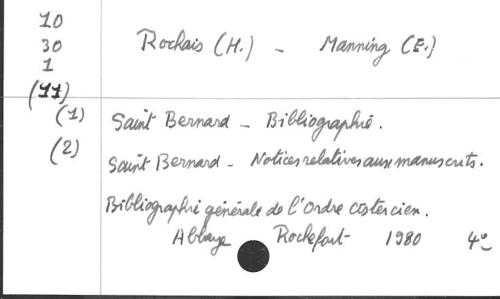 10
30
1
(11)
(1)
(2)
Rochais (H.) - Manning (E.)
Saint Bernard - Bibliographie.
Saint Bernard - Notices relatives aux manuscrits.
Bibliographie générale de l'Ordre cistercien.
Abbaye Rochefort 1980 4º